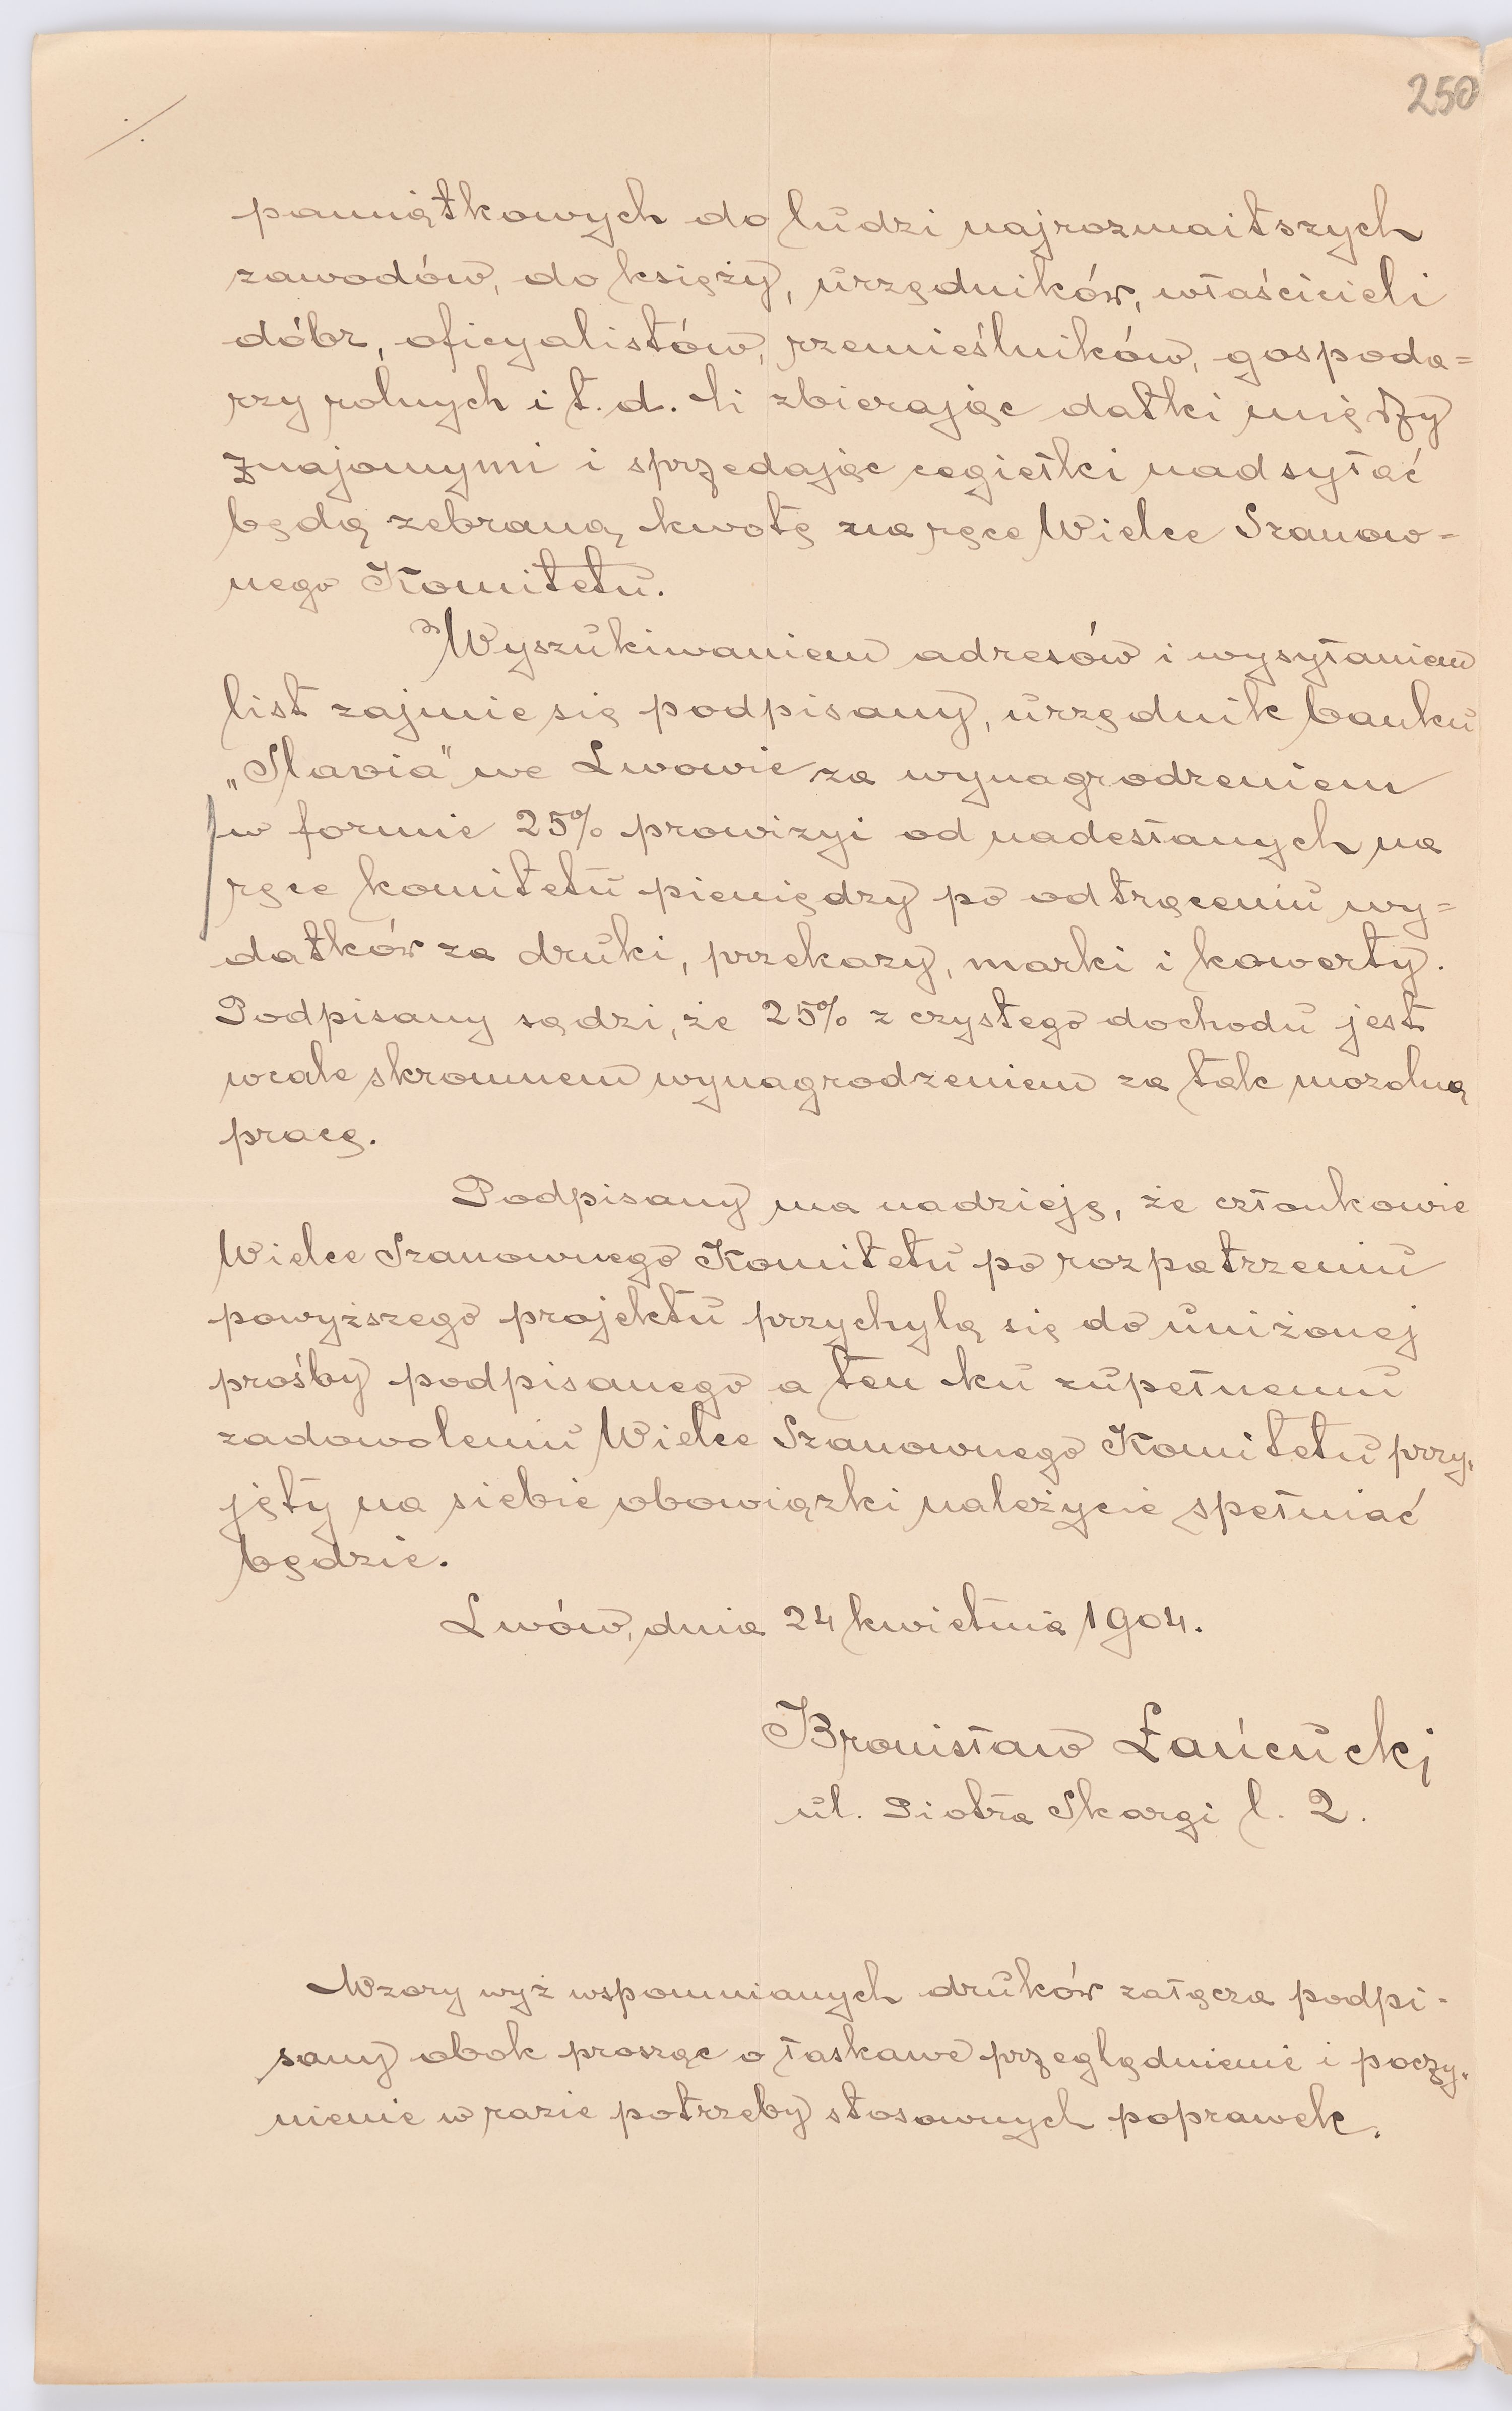 250
pamiątkowych do ludzi najrozmaitszych
zawodów, do księży, urzędników, właścicieli
dóbr, oficyalistów, rzemieślników, gospoda=
rzy rolnych i t. d. Ci zbierając datki między
znajomymi i sprzedając cegiełki nadsyłać
będą zebraną kwotę na ręce Wielce Szanow-
nego Komitetu.
Wyszukiwaniem adresów i wysyłaniem
list zajmie się podpisany, urzędnik banku
„Slavia" we Lwowie za wynagrodzeniem
w formie 25% prowizyi od nadesłanych na
ręce komitetu pieniędzy po odtrąceniu wy=
datków za druki, przekazy, marki i kowerty.
Podpisany sądzi, że 25% z czystego dochodu jest
wcale skromnem wynagrodzeniem za tak mozolną
pracę.
Podpisany ma nadzieję, że członkowie
Wielce Szanownego Komitetu po rozpatrzeniu
powyższego projektu przychylą się do uniżonej
prośby podpisanego a ten ku zupełnemu
zadowoleniu Wielce Szanownego Komitetu przy-
jęty na siebie obowiązki należycie spełniać
będzie.
Lwów, dnia 24 kwietnia 1904.
Bronisław Łańcucki
ul. Piotra Skargi l. 2.
Wzory wyż wspomnianych druków załącza podpi-
sany obok prosząc o łaskawe przeglądnienie i poczy-
nienie w razie potrzeby stosownych poprawek.